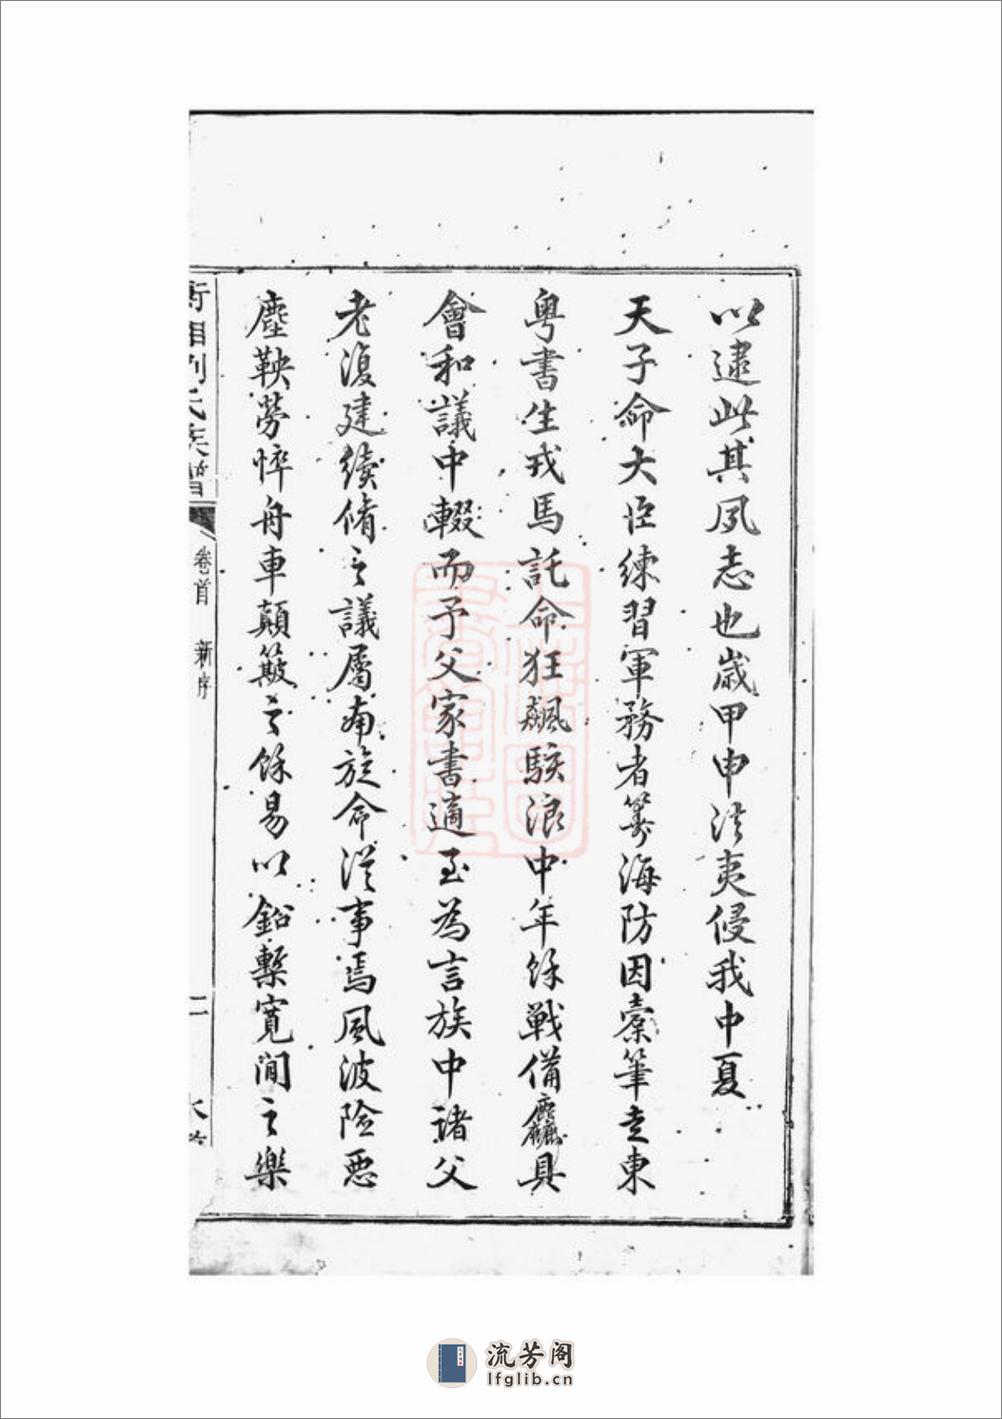 以逮此其夙志也歲甲申法夷侵我中夏
天子命大臣練習軍務者籌海防因橐筆走東
粤書生戎馬託命狂飆駭浪中年餘戰備麤具
會和議中輟而予父家書適至為言族中諸父
老復建續脩之議屬甫旋命從事焉風波險惡
塵鞅勞悴舟車顛簸之餘易以鉛槧寬閒之樂
衡湘劉氏族譜
卷首 新序
二
流芳阁
lfglib.cn